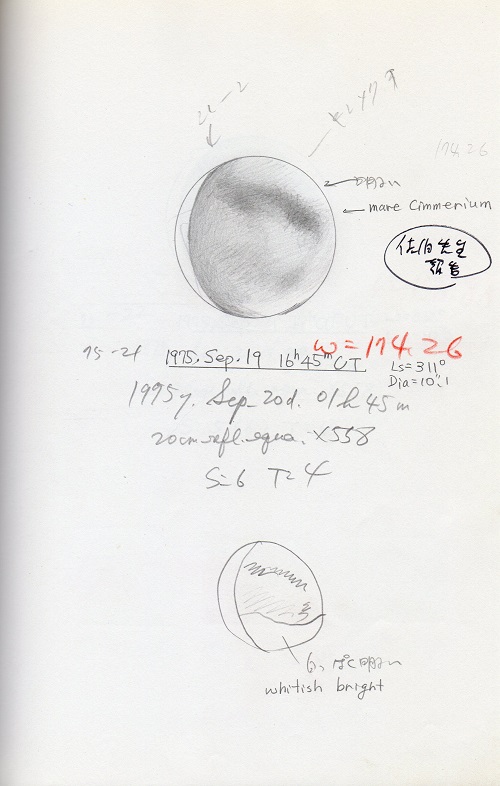 174.26
明るい
mare Cimmerium
佐伯先生
報告
ω=174.26
75-21 1975. Sep. 19 16h 45m UT
Ls=311°
Dia=10".1
1975y. Sep. 20d. 01h 45m
20cm refl. equa. ×558
S=6 T=4
白っぽく明るい
whitish bright